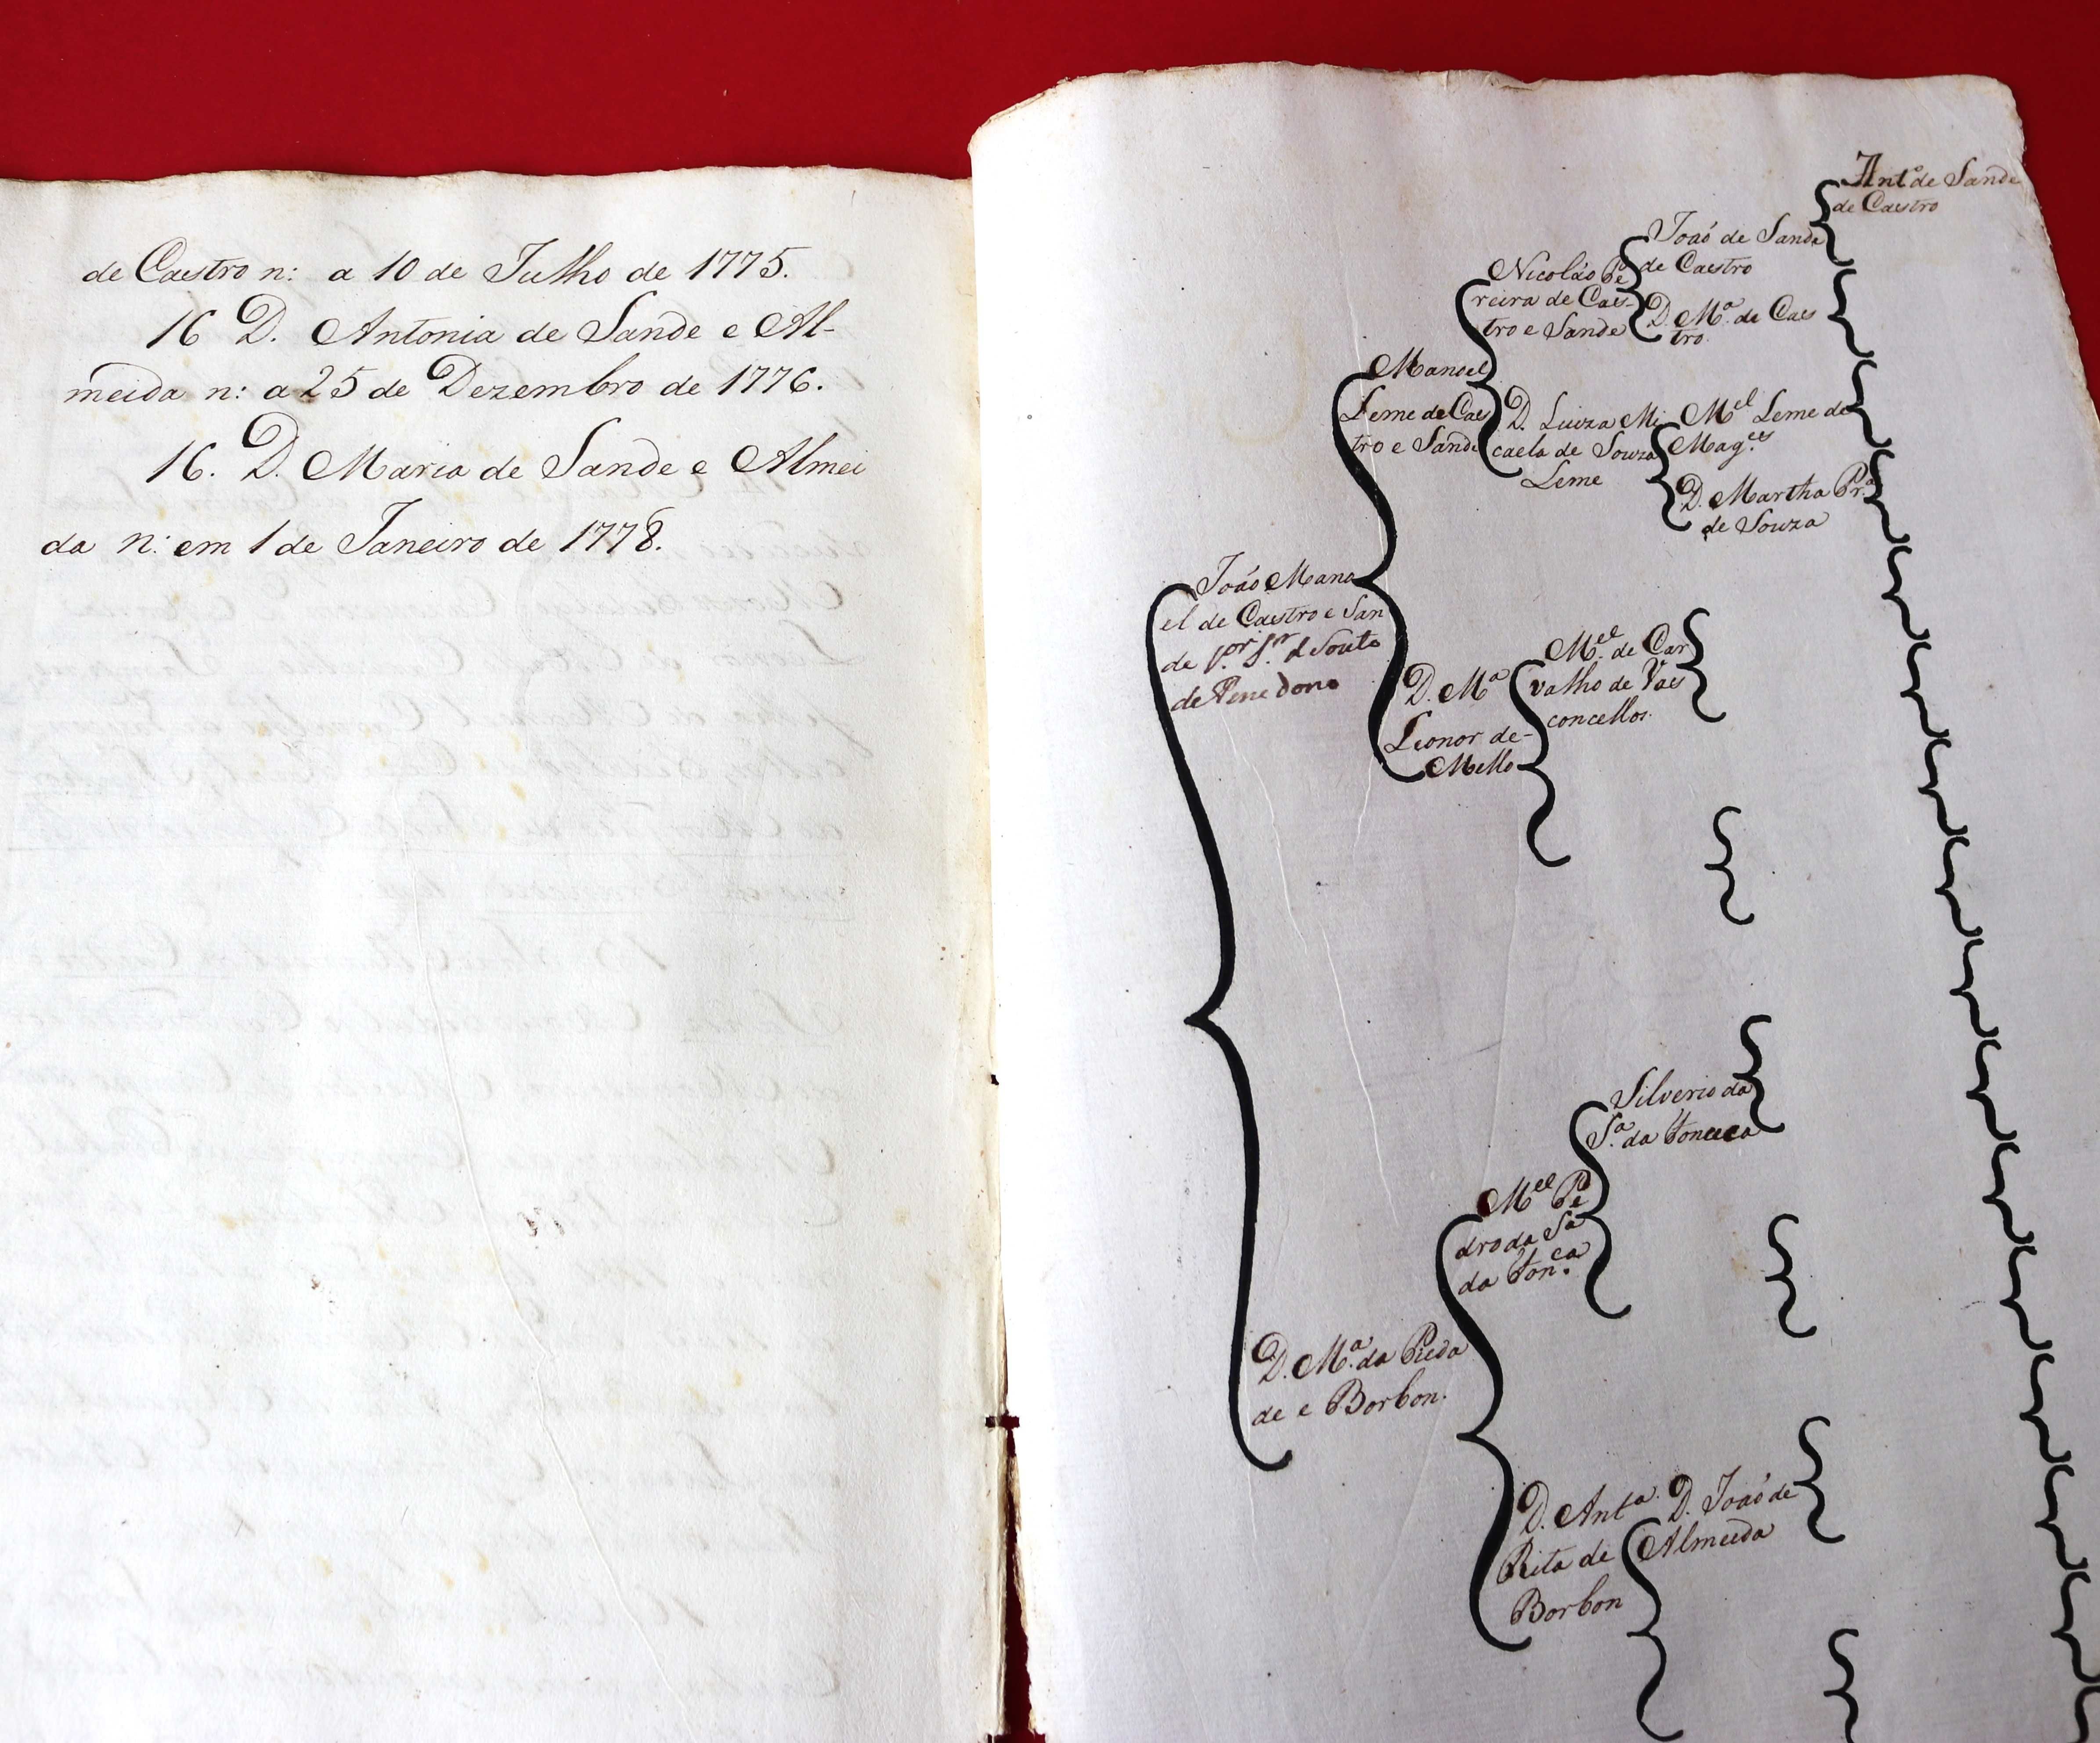 de Castro n: a 10 de Julho de 1775.
16 D. Antonia de Sande e Al-
meida n: a 25 de Dezembro de 1776.
16. D. Maria de Sande e Almei
da n: em 1 de Janeiro de 1778.
Antº de Sande
de Castro
Joaõ de Sande
de Castro
Nicoláo Pe
reira de Cas-
tro e Sande
D. Mª. de Cas
tro.
Manoel
Leme de Cas
tro e Sande
D. Luiza Mi
caela de Souza
Leme
Mel Leme de
Mag.es
D. Martha Pr.ª
de Souza
João Mano
el de Castro e San
de Sr. d Souto
de Penedono
D. Mª
Leonor de-
Mello
Mel. de Car
valho de Vas
concellos.
Silverio da
Sª. da Fonseca
Mel Pe
dro da Sª
da Fon.ca
D. Mª. da Pieda
de e Borbon.
D. Antª.
Rita de
Borbon
D. Joaõ de
Almeida